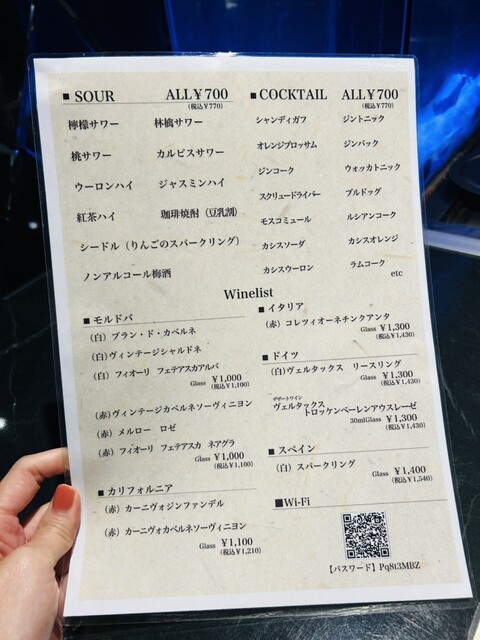 ■ SOUR ALL¥700
(税込¥770)
檸檬サワー 林檎サワー
桃サワー カルピスサワー
ウーロンハイ ジャスミンハイ
紅茶ハイ 珈琲焼酎（豆乳割）
シードル（りんごのスパークリング）
ノンアルコール梅酒
■ COCKTAIL ALL¥700
(税込¥770)
シャンディガフ ジントニック
オレンジブロッサム ジンバック
ジンコーク ウォッカトニック
スクリュードライバー ブルドッグ
モスコミュール ルシアンコーク
カシスソーダ カシスオレンジ
カシスウーロン ラムコーク
etc
Winelist
■ モルドバ
（白）ブラン・ド・カベルネ
（白）ヴィンテージシャルドネ
（白）フィオーリ フェテアスカアルバ
Glass ¥1,000
(税込¥1,100)
（赤）ヴィンテージカベルネソーヴィニヨン
（赤）メルロー ロゼ
（赤）フィオーリ フェテアスカ ネアグラ
Glass ¥1,000
(税込¥1,100)
■ カリフォルニア
（赤）カーニヴォジンファンデル
（赤）カーニヴォカベルネソーヴィニヨン
Glass ¥1,100
(税込¥1,210)
■ イタリア
（赤）コレツィオーネチンクアンタ
Glass ¥1,300
(税込¥1,430)
■ ドイツ
（白）ヴェルタックス リースリング
Glass ¥1,300
(税込¥1,430)
デザートワイン
ヴェルタックス
トロッケンベーレンアウスレーゼ
30mlGlass ¥1,300
(税込¥1,430)
■ スペイン
（白）スパークリング
Glass ¥1,400
(税込¥1,540)
■Wi-Fi
【パスワード】Pq8t3MBZ